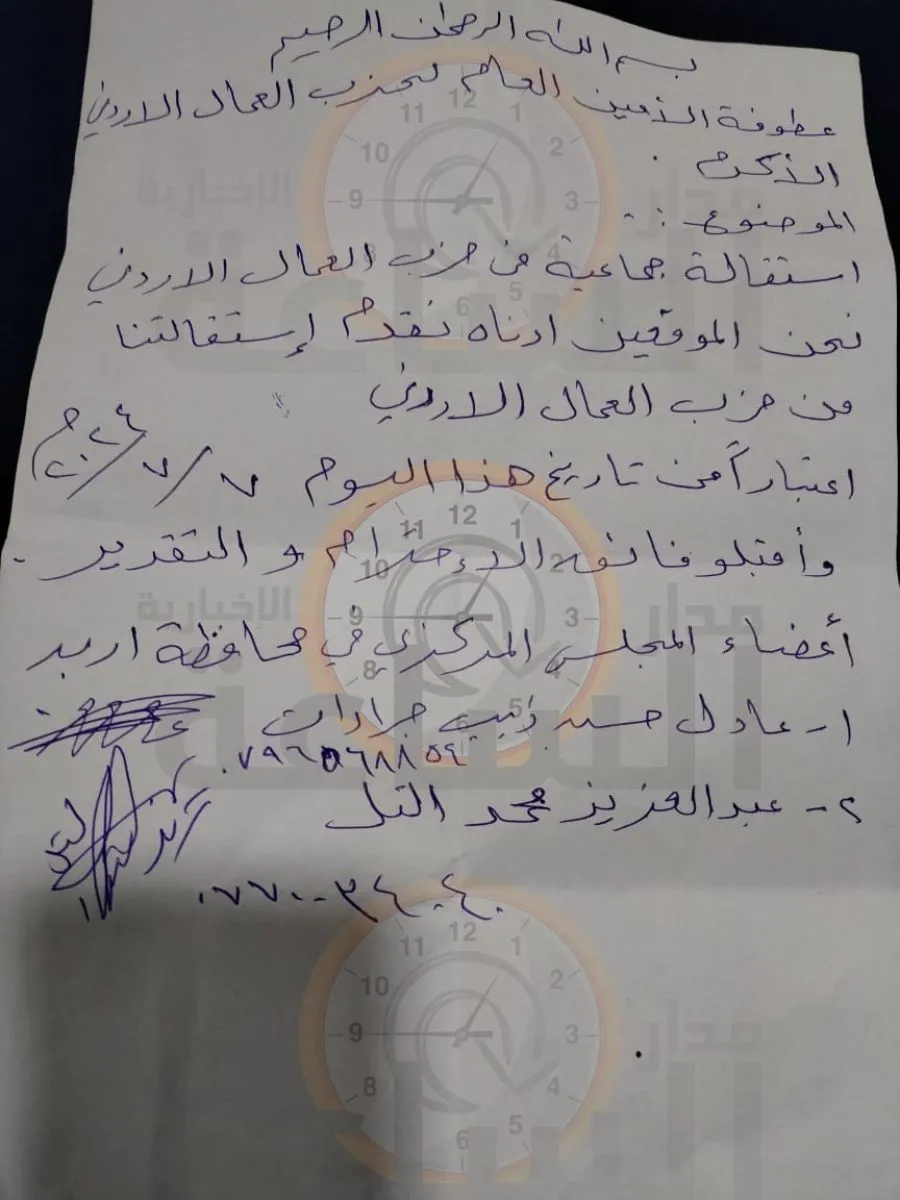 بسم الله الرحمن الرحيم
عطوفة الأمين العام لحزب العمال الاردني
الأكرم .
الموضوع :
استقالة جماعية من حزب العمال الاردني
نحن الموقعين ادناه نقدم إستقالتنا
من حزب العمال الاردني
اعتباراً من تاريخ هذا اليوم ٧/٧/٢٠٢٤م
وأقبلو فائق الإحترام و التقدير .
أعضاء المجلس المركزي في محافظة اربد
١- عادل حسن ذيب جرادات
٠٧٩٦٥٦٨٨٥٩
٢- عبدالعزيز محمد التل
٠٧٧٠٠٣٤٠٤٠
مدار
الساعة
الإخبارية